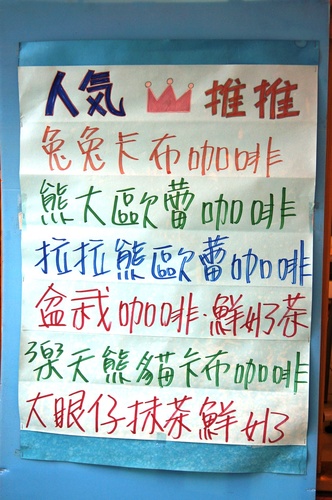 人気 推推
兔兔卡布咖啡
熊大歐蕾咖啡
拉拉熊歐蕾咖啡
盆栽咖啡·鮮奶茶
樂天熊貓卡布咖啡
大眼仔抹茶鮮奶